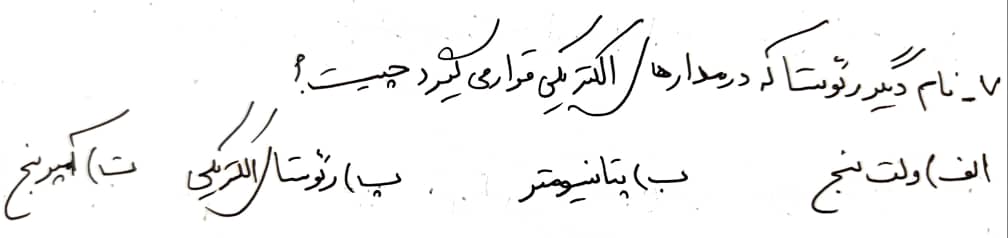 ۷_ نام دیگر رئوستا که در مدارهای الکتریکی قرار می گیرد چیست؟
الف) ولت سنج ب) پتانسیومتر پ) رئوستای الکتریکی ت) آمپرسنج